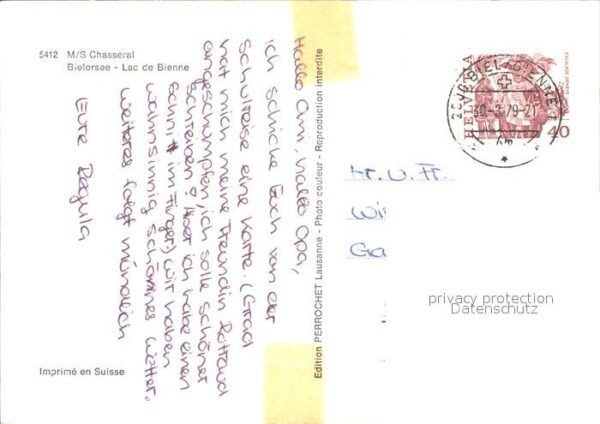 5412 M/S Chasseral
Bielersee - Lac de Bienne
Hallo Omi, hallo Opa,
ich schicke Euch von der
Schulreise eine Karte. (Grad
hat mich meine Freundin Rotraud
angeschumpfen, ich solle schöner
schreiben! Aber ich habe einen
Schnitt im Finger) Wir haben
wahnsinnig schönes Wetter.
Weiteres folgt mündlich
Eure Regula
Imprimé en Suisse
Edition PERROCHET Lausanne - Photo couleur - Reproduction interdite
HELVETIA
40
2500 BIEL-BIENNE 1
79-21
Hr. u. Fr.
Wi
Ga
privacy protection
Datenschutz